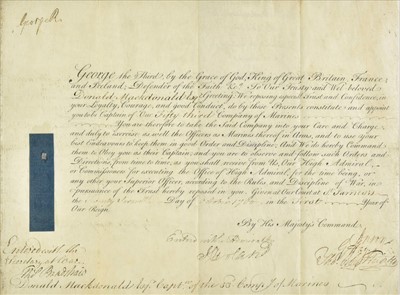 George R
George the Third, by the Grace of God, King of Great Britain, France
and Ireland, Defender of the Faith &c. To Our Trusty and Wel beloved
Donald Mackdonald Esqr. Greeting: We reposing especial Trust and Confidence, in
your Loyalty, Courage, and good Conduct, do by these Presents constitute and appoint
you to be Captain of Our Fifty third Company of Marines
You are therefore to take the said Company into your Care and Charge
and duly to Exercise as well the Officers as Marines thereof in Arms, and to use your
best Endeavours to keep them in good Order and Discipline; And We do hereby Command
them to Obey you as their Captain; and you are to observe and follow such Orders and
Directions from time to time, as you shall receive from Us, Our High Admiral,
or Commissioners for executing the Office of High Admiral for the time being, or
any other your Superior Officer, according to the Rules and Discipline of War, in
pursuance of the Trust hereby reposed in you. Given at Our Court at St James's
the Day of in the First Year of
Our Reign.
By His Majesty's Command
Entered with the
Secretary at War
Donald Mackdonald Esqr. Captn. of the 53 Compy. of Marines